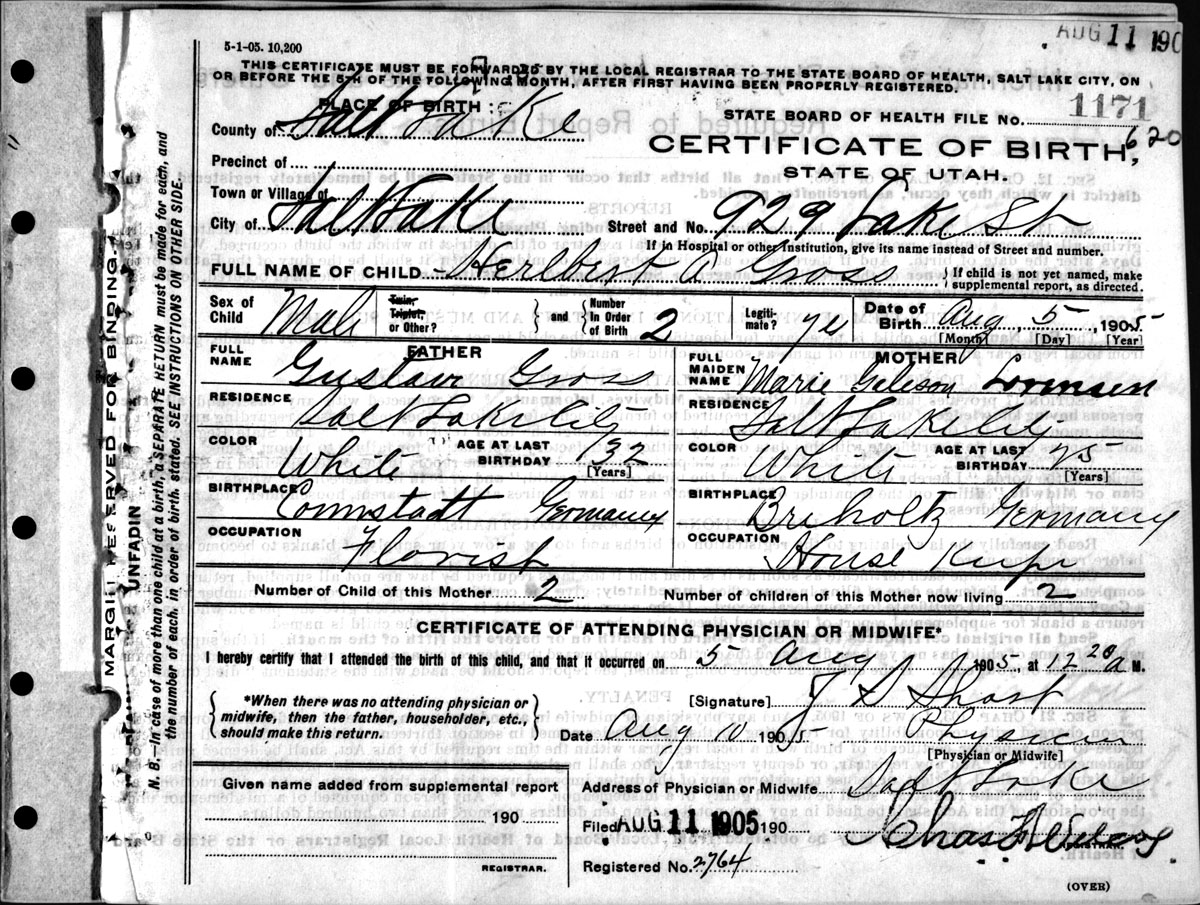 AUG 11 190
5-1-05. 10,200
THIS CERTIFICATE MUST BE FORWARDED BY THE LOCAL REGISTRAR TO THE STATE BOARD OF HEALTH, SALT LAKE CITY, ON
OR BEFORE THE 5TH OF THE FOLLOWING MONTH, AFTER FIRST HAVING BEEN PROPERLY REGISTERED.
PLACE OF BIRTH:
County of Salt Lake
STATE BOARD OF HEALTH FILE NO. 1171
620
CERTIFICATE OF BIRTH,
STATE OF UTAH.
Precinct of
Town or Village of
City of Salt Lake
Street and No. 929 Lake St
If in Hospital or other Institution, give its name instead of Street and number.
FULL NAME OF CHILD Herlbert A Gross { If child is not yet named, make
supplemental report, as directed.
Sex of Child Male Twin, Triplet, or Other? } and { Number in Order of Birth 2 Legiti-mate? yes Date of Birth Aug, 5 1905
[Month] [Day] [Year]
FATHER MOTHER
FULL NAME Gustave Gross FULL MAIDEN NAME Marie Lorensen
RESIDENCE Salt Lake City RESIDENCE Salt Lake City
COLOR White AGE AT LAST BIRTHDAY 32 [Years] COLOR White AGE AT LAST BIRTHDAY 25 [Years]
BIRTHPLACE Connstadt Germany BIRTHPLACE Breholtz Germany
OCCUPATION Florist OCCUPATION House Keeper
Number of Child of this Mother 2 Number of children of this Mother now living 2
CERTIFICATE OF ATTENDING PHYSICIAN OR MIDWIFE*
I hereby certify that I attended the birth of this child, and that it occurred on 5 Aug 1905, at 12 20 a M.
*When there was no attending physician or
midwife, then the father, householder, etc.,
should make this return.
[Signature] J S Sharp
Date Aug 10 1905 Physician
[Physician or Midwife]
Given name added from supplemental report
190
REGISTRAR.
Address of Physician or Midwife Salt Lake
Filed AUG 11 1905 190
Registered No. 2764
(OVER)
MARGIN RESERVED FOR BINDING.
UNFADIN
N. B.—In case of more than one child at a birth, a SEPARATE RETURN must be made for each, and
the number of each, in order of birth, stated. SEE INSTRUCTIONS ON OTHER SIDE.